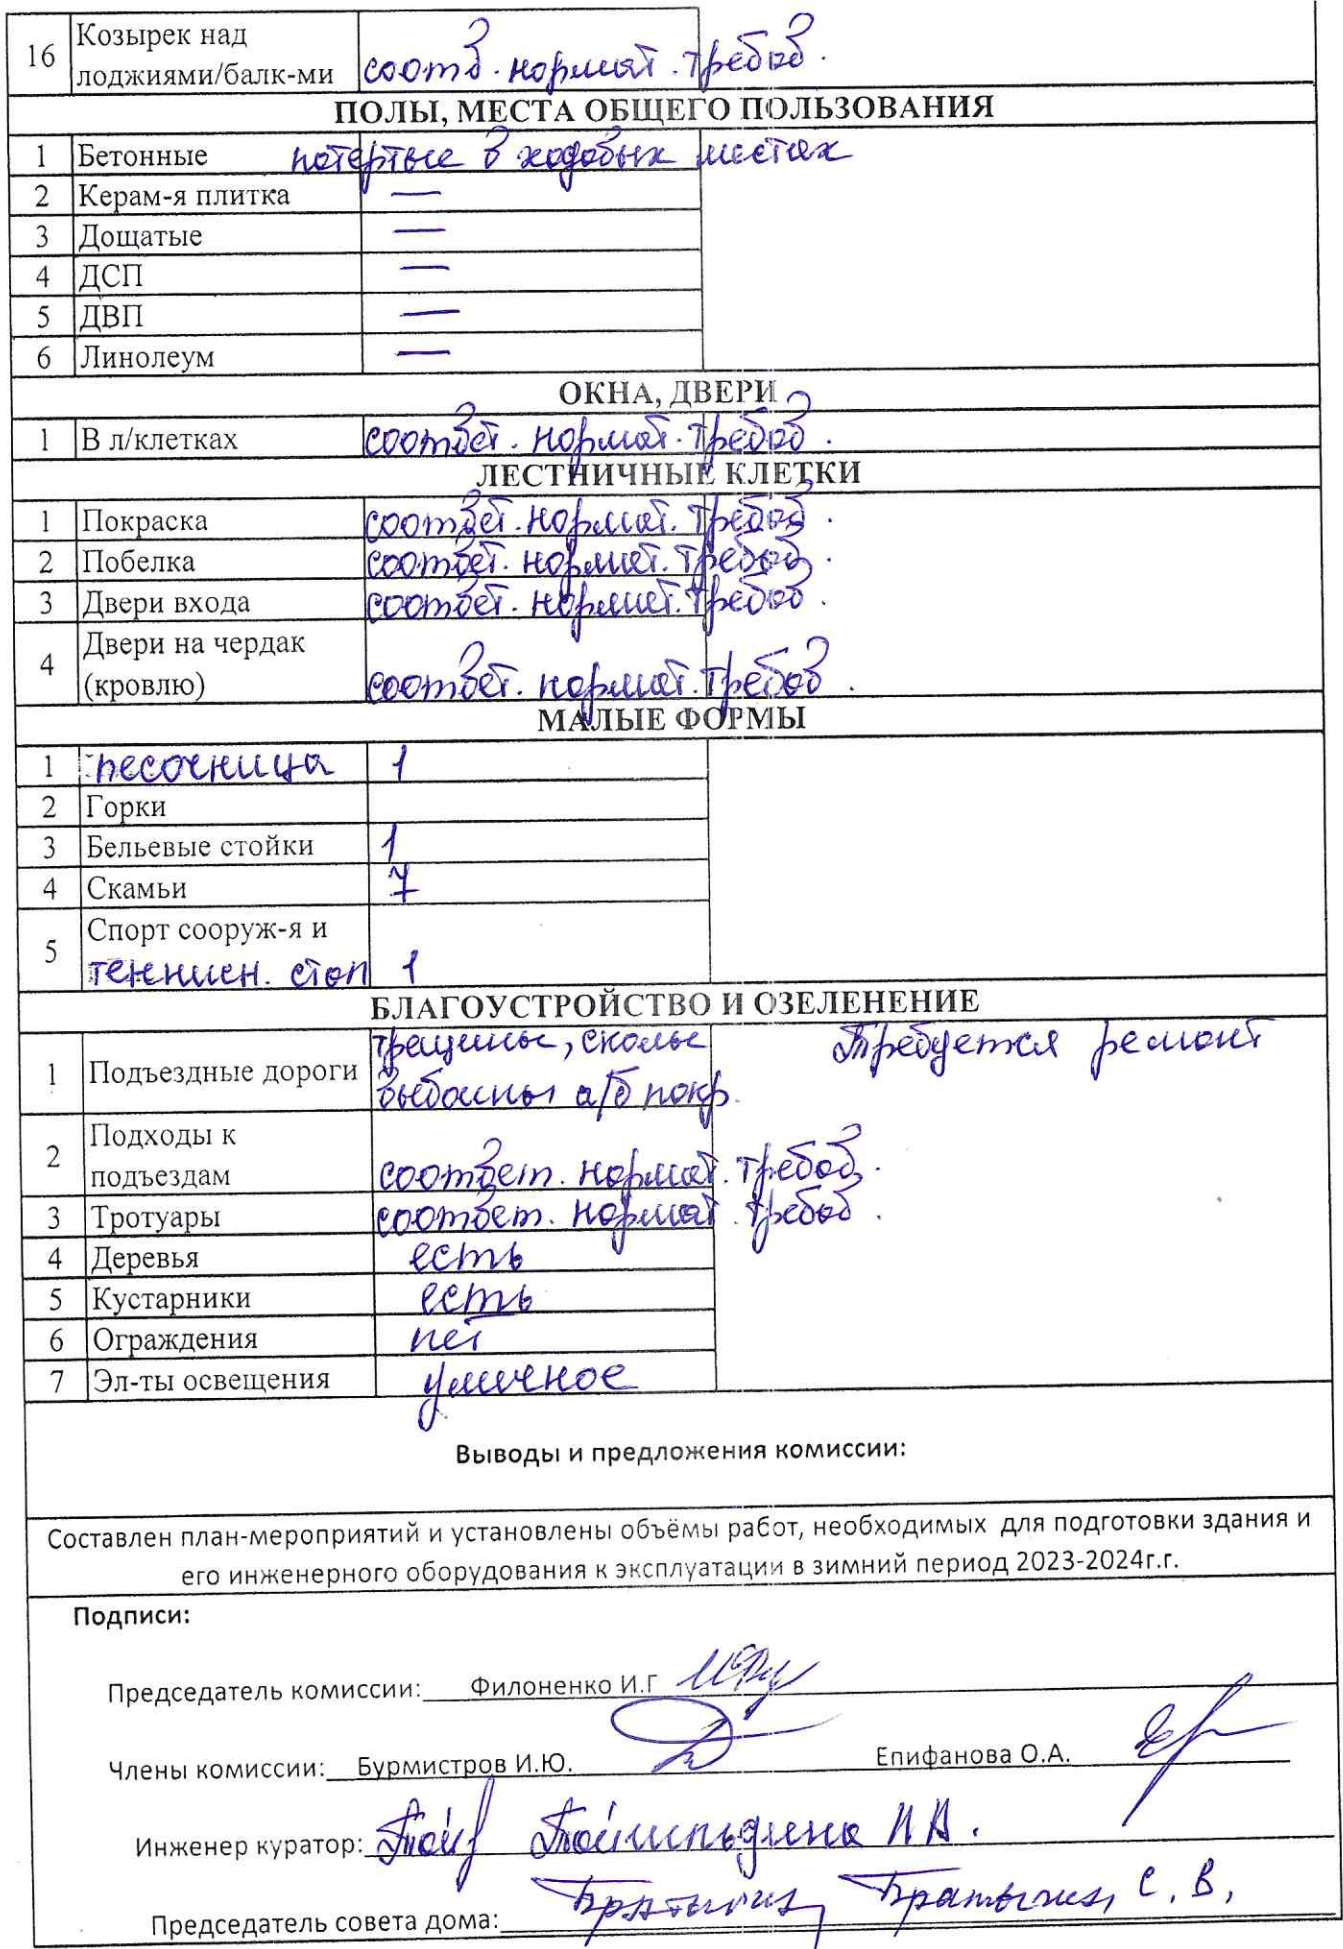 16 Козырек над
лоджиями/балк-ми соотв. нормат. требов.
ПОЛЫ, МЕСТА ОБЩЕГО ПОЛЬЗОВАНИЯ
1 Бетонные потертые в ходовых местах
2 Керам-я плитка —
3 Дощатые —
4 ДСП —
5 ДВП —
6 Линолеум —
ОКНА, ДВЕРИ
1 В л/клетках соответ. нормат. требов.
ЛЕСТНИЧНЫЕ КЛЕТКИ
1 Покраска соответ. нормат. требов.
2 Побелка соответ. нормат. требов.
3 Двери входа соответ. нормат. требов.
4 Двери на чердак
(кровлю) соответ. нормат. требов.
МАЛЫЕ ФОРМЫ
1 песочница 1
2 Горки
3 Бельевые стойки 1
4 Скамьи 7
5 Спорт сооруж-я и
теннисн. стол 1
БЛАГОУСТРОЙСТВО И ОЗЕЛЕНЕНИЕ
1 Подъездные дороги трещины, сколы Требуется ремонт
выбоины а/б покр.
2 Подходы к
подъездам соответ. нормат. требов.
3 Тротуары соответ. нормат. требов.
4 Деревья есть
5 Кустарники есть
6 Ограждения нет
7 Эл-ты освещения уличное
Выводы и предложения комиссии:
Составлен план-мероприятий и установлены объёмы работ, необходимых для подготовки здания и
его инженерного оборудования к эксплуатации в зимний период 2023-2024г.г.
Подписи:
Председатель комиссии: Филоненко И.Г
Члены комиссии: Бурмистров И.Ю. Епифанова О.А.
Инженер куратор:
Председатель совета дома: С. В.